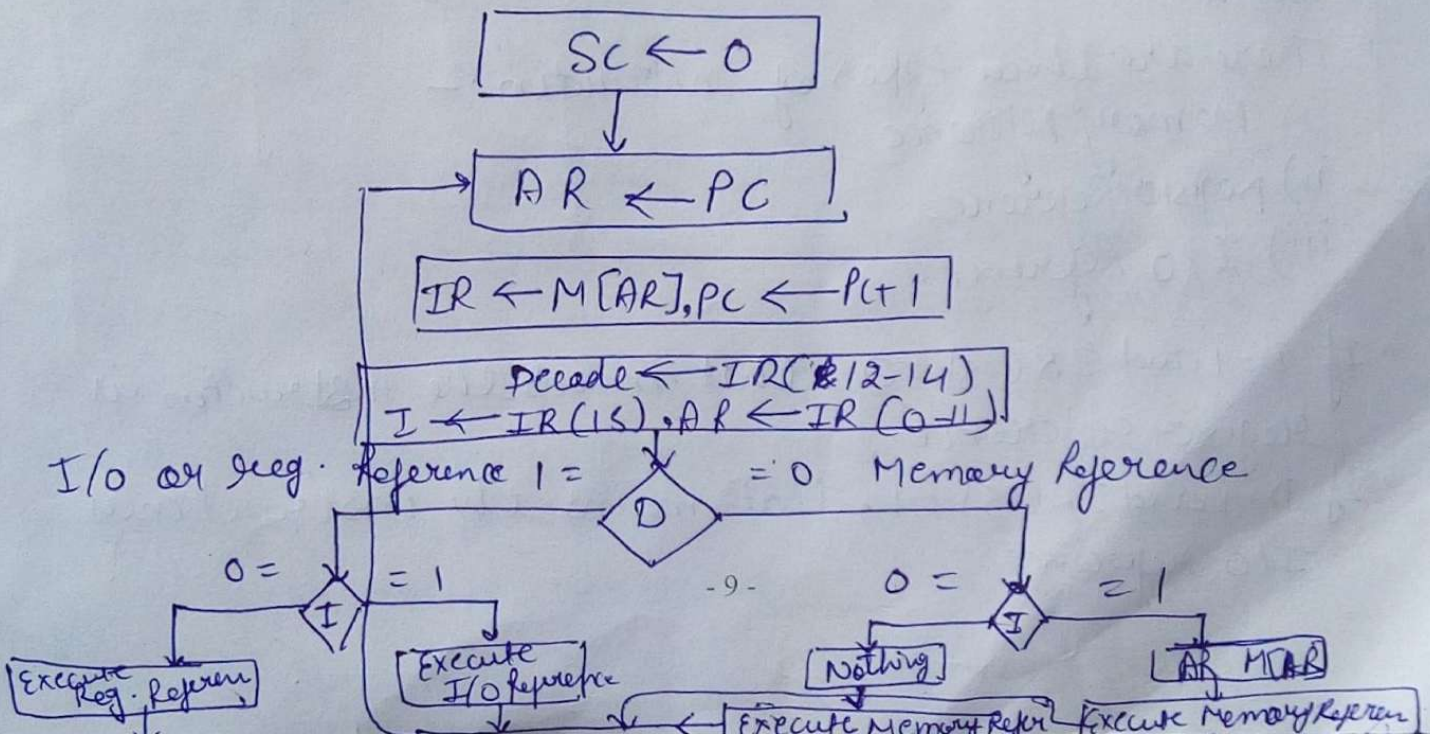 SC ← 0
AR ← PC
IR ← M[AR], PC ← PC+1
Decade ← IR(12-14)
I ← IR(15), AR ← IR (0-11)
I/O or reg. Reference 1 = = 0 Memory Reference
D
0 = = 1 - 9 - 0 = = 1
I I
Execute Reg. Referen
Execute I/O Reference
Nothing
AR M[AR
Execute Memory Refer
Execute Memory Referen